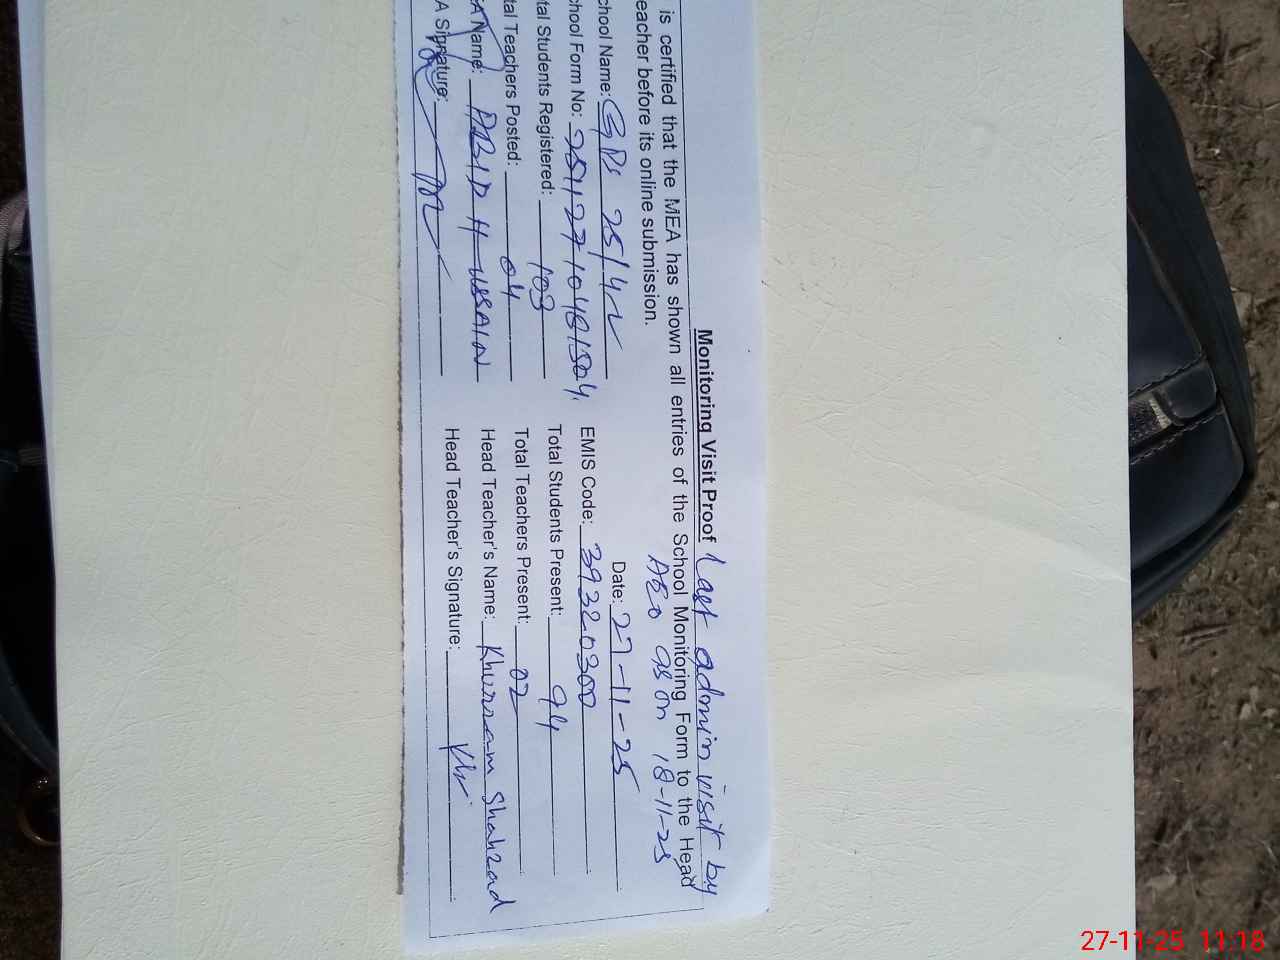 Monitoring Visit Proof Last admin visit by
AEO as on 18-11-25
is certified that the MEA has shown all entries of the School Monitoring Form to the Head
eacher before its online submission.
Date: 27-11-25
chool Name: GPS 25/4-L
chool Form No: 25112710481504 EMIS Code: 39320300
tal Students Registered: 103 Total Students Present: 94
tal Teachers Posted: 04 Total Teachers Present: 02
A Name: ABID HUSSAIN Head Teacher's Name: Khurram Shahzad
A Signature: Head Teacher's Signature:
27-11-25 11:18